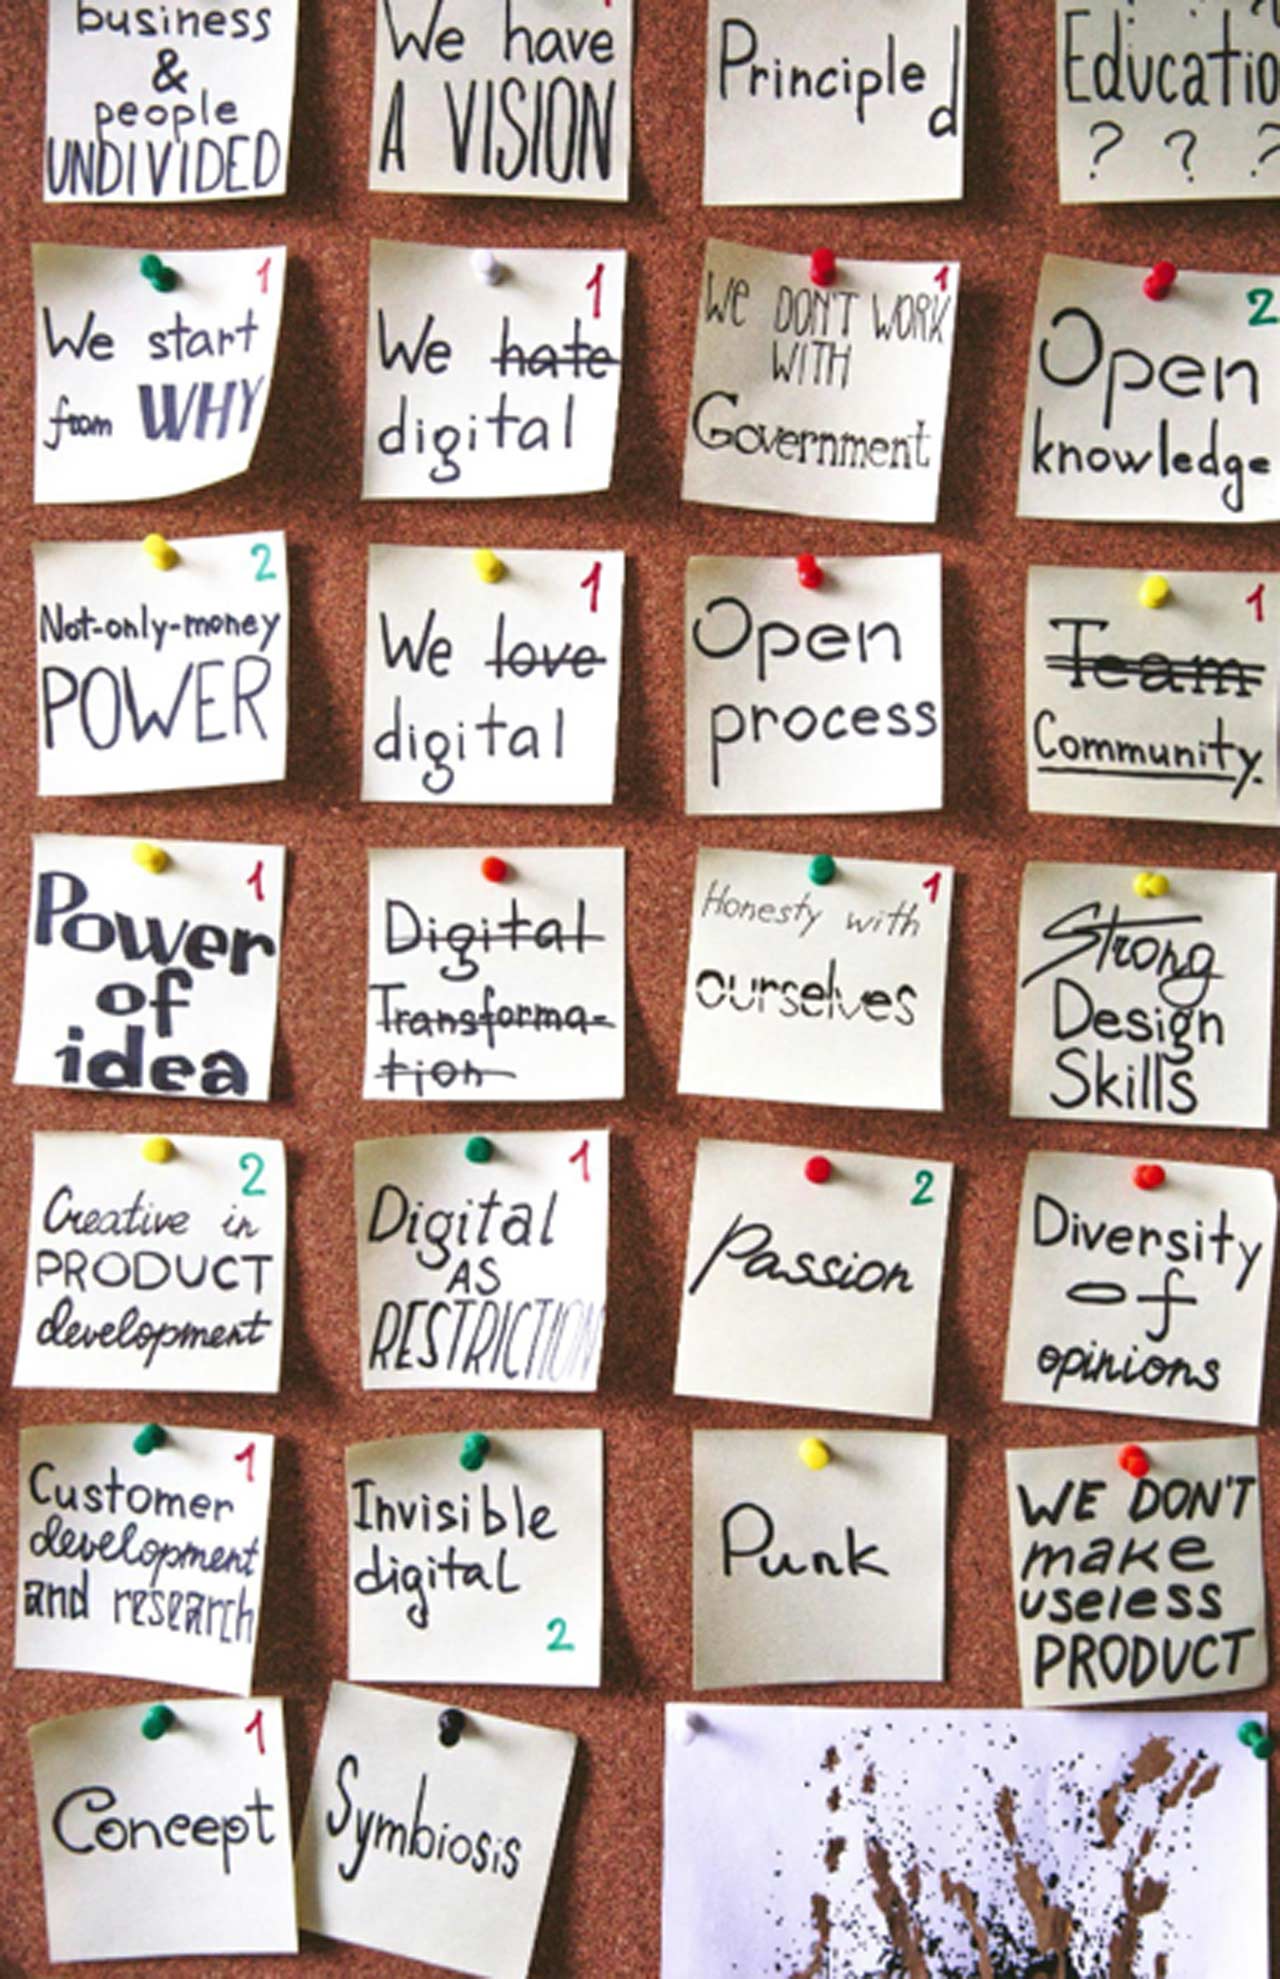 business
&
people
UNDIVIDED
We have
A VISION
Principled
Educatio
? ? ?
1
We start
from WHY
1
We hate
digital
1
We DON'T WORK
WITH
Government
2
Open
knowledge
2
Not-only-money
POWER
1
We love
digital
Open
process
1
Team
Community.
1
Power
of
idea
Digital
Transforma-
tion
1
Honesty with
ourselves
Strong
Design
Skills
2
Creative in
PRODUCT
development
1
Digital
AS
RESTRICTION
2
Passion
Diversity
of
opinions
1
Customer
development
and research
Invisible
digital
2
Punk
WE DON'T
make
useless
PRODUCT
1
Concept
Symbiosis